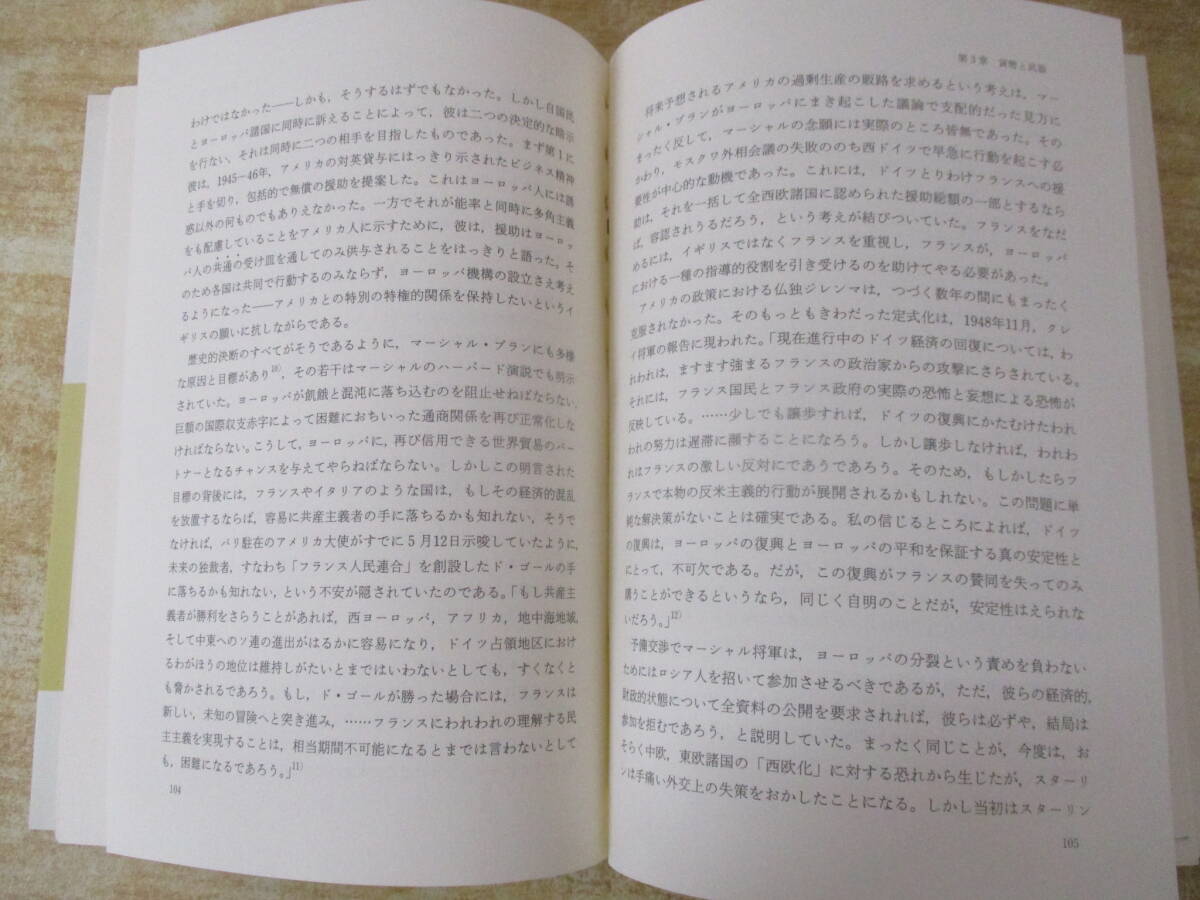 わけではなかった——しかも，そうするはずでもなかった。しかし自国民
とヨーロッパ諸国に同時に訴えることによって，彼は二つの決定的な暗示
を行ない，それは同時に二つの相手を目指したものであった。まず第1に
彼は，1945-46年，アメリカの対英貸与にはっきり示されたビジネス精神
と手を切り，包括的で無償の援助を提案した。これはヨーロッパ人には誘
惑以外の何ものでもありえなかった。一方でそれが能率と同時に多角主義
をも配慮していることをアメリカ人に示すために，彼は，援助はヨーロッ
パ人の共通の受け皿を通してのみ供与されることをはっきりと語った。そ
のため各国は共同で行動するのみならず，ヨーロッパ機構の設立さえ考え
るようになった——アメリカとの特別の特権的関係を保持したいというイ
ギリスの願いに抗しながらである。
歴史的決断のすべてがそうであるように，マーシャル・プランにも多様
な原因と目標があり10)，その若干はマーシャルのハーバード演説でも明示
されていた。ヨーロッパが飢餓と混沌に落ち込むのを阻止せねばならない，
巨額の国際収支赤字によって困難におちいった通商関係を再び正常化しな
ければならない。こうして，ヨーロッパに，再び信用できる世界貿易のパー
トナーとなるチャンスを与えてやらねばならない。しかしこの明言された
目標の背後には，フランスやイタリアのような国は，もしその経済的混乱
を放置するならば，容易に共産主義者の手に落ちるかも知れない，そうで
なければ，パリ駐在のアメリカ大使がすでに5月12日示唆していたように，
未来の独裁者，すなわち「フランス人民連合」を創設したド・ゴールの手
に落ちるかも知れない，という不安が隠されていたのである。「もし共産主
義者が勝利をさらうことがあれば，西ヨーロッパ，アフリカ，地中海地域，
そして中東へのソ連の進出がはるかに容易になり，ドイツ占領地区におけ
るわがほうの地位は維持しがたいとまではいわないとしても，すくなくと
も脅かされるであろう。もし，ド・ゴールが勝った場合には，フランスは
新しい，未知の冒険へと突き進み，……フランスにわれわれの理解する民
主主義を実現することは，相当期間不可能になるとまでは言わないとして
も，困難になるであろう。」11)
104
第3章 貨幣と武器
将来予想されるアメリカの過剰生産の販路を求めるという考えは，マー
シャル・プランがヨーロッパにまき起こした議論で支配的だった見方に
まったく反して，マーシャルの念願には実際のところ皆無であった。その
かわり，モスクワ外相会議の失敗ののち西ドイツで早急に行動を起こす必
要性が中心的な動機であった。これには，ドイツとりわけフランスへの援
助は，それを一括して全西欧諸国に認められた援助総額の一部とするなら
ば，容認されうるだろう，という考えが結びついていた。フランスをなだ
めるには，イギリスではなくフランスを重視し，フランスが，ヨーロッパ
における一種の指導的役割を引き受けるのを助けてやる必要があった。
アメリカの政策における仏独ジレンマは，つづく数年の間にもまったく
克服されなかった。そのもっともきわだった定式化は，1948年11月，クレ
イ将軍の報告に現われた。「現在進行中のドイツ経済の回復については，わ
れわれは，ますます強まるフランスの政治家からの攻撃にさらされている。
それには，フランス国民とフランス政府の実際の恐怖と妄想による恐怖が
反映している。……少しでも譲歩すれば，ドイツの復興にかたむけたわれ
われの努力は遅滞に瀕することになろう。しかし譲歩しなければ，われわ
れはフランスの激しい反対にであうであろう。そのため，もしかしたらフ
ランスで本物の反米主義的行動が展開されるかもしれない。この問題に単
純な解決策がないことは確実である。私の信じるところによれば，ドイツ
の復興は，ヨーロッパの復興とヨーロッパの平和を保証する真の安定性と
にとって，不可欠である。だが，この復興がフランスの賛同を失ってのみ
購うことができるというなら，同じく自明のことだが，安定性はえられな
いだろう。」12)
予備交渉でマーシャル将軍は，ヨーロッパの分裂という責めを負わない
ためにはロシア人を招いて参加させるべきであるが，ただ，彼らの経済的，
財政的状態について全資料の公開を要求されれば，彼らは必ずや，結局は
参加を拒むであろう，と説明していた。まったく同じことが，今度は，お
そらく中欧，東欧諸国の「西欧化」に対する恐れから生じたが，スターリ
ンは手痛い外交上の失策をおかしたことになる。しかし当初はスターリン
105